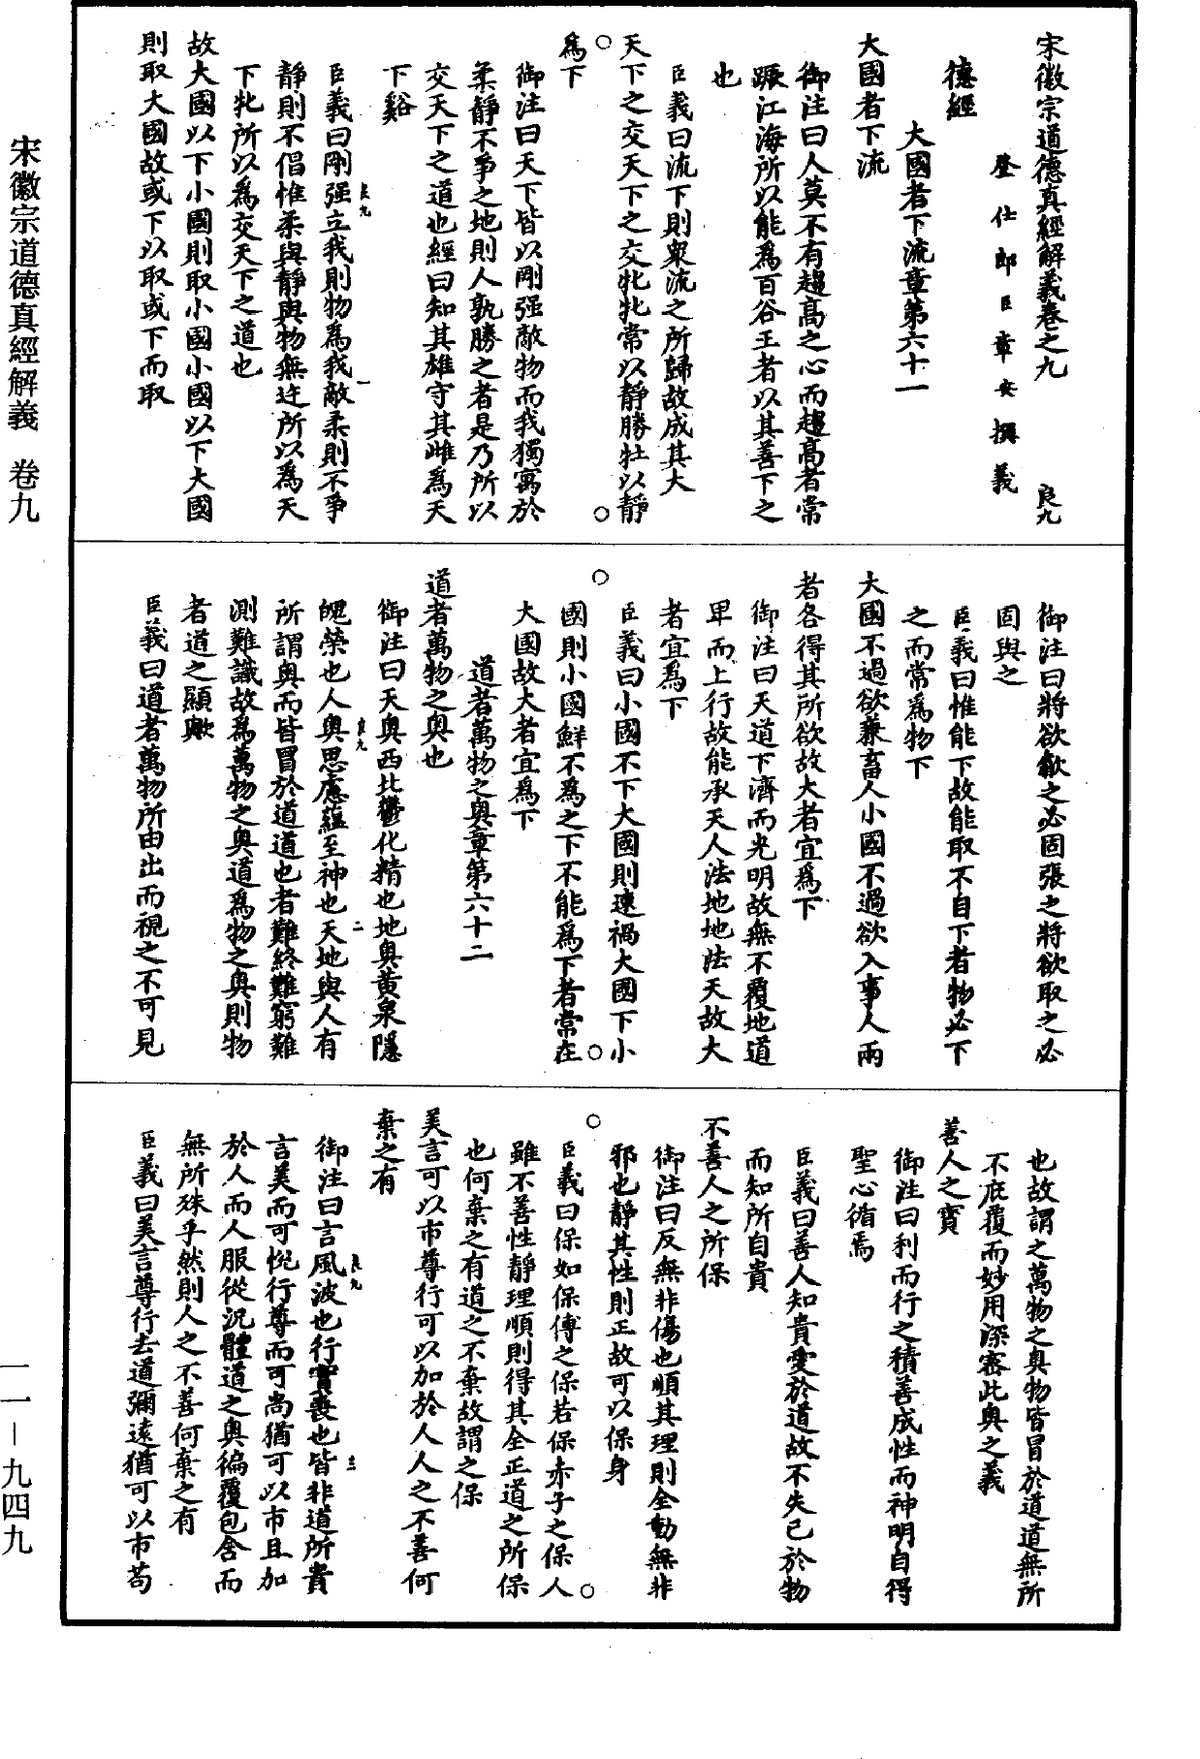 宋徽宗道德真經解義卷之九 良九
登仕郎臣章安撰義
德經
大國者下流章第六十一
大國者下流
御注曰人莫不有趨高之心而趨高者常
蹶江海所以能為百谷王者以其善下之
也
臣義曰流下則衆流之所歸故成其大
天下之交天下之交牝牝常以靜勝牡以靜
為下
御注曰天下皆以剛强敵物而我獨寓於
柔靜不爭之地則人孰勝之者是乃所以
交天下之道也經曰知其雄守其雌為天
下谿
臣義曰剛强立我則物為我敵柔則不爭
靜則不倡惟柔與靜與物無迕所以為天
下牝所以為交天下之道也
故大國以下小國則取小國小國以下大國
則取大國故或下以取或下而取
御注曰將欲歙之必固張之將欲取之必
固與之
臣義曰惟能下故能取不自下者物必下
之而常為物下
大國不過欲兼畜人小國不過欲入事人兩
者各得其所欲故大者宜為下
御注曰天道下濟而光明故無不覆地道
卑而上行故能承天人法地地法天故大
者宜為下
臣義曰小國不下大國則速禍大國下小
國則小國鮮不為之下不能為下者常在
大國故大者宜為下
道者萬物之奧章第六十二
道者萬物之奧也
御注曰天奧西北鬱化精也地奧黄泉隱
魄榮也人奧思慮蘊至神也天地與人有
所謂奧而皆冒於道道也者難終難窮難
測難識故為萬物之奧道為物之奧則物
者道之顯歟
臣義曰道者萬物所由出而視之不可見
也故謂之萬物之奧物皆冒於道道無所
不庇覆而妙用深密此奧之義
善人之寶
御注曰利而行之積善成性而神明自得
聖心循焉
臣義曰善人知貴愛於道故不失己於物
而知所自貴
不善人之所保
御注曰反無非傷也順其理則全動無非
邪也靜其性則正故可以保身
臣義曰保如保傅之保若保赤子之保人
雖不善性靜理順則得其全正道之所保
也何棄之有道之不棄故謂之保
美言可以市尊行可以加於人人之不善何
棄之有
御注曰言風波也行實喪也皆非道所貴
言美而可悅行尊而可尚猶可以市且加
於人而人服從況體道之奧徧覆包含而
無所殊乎然則人之不善何棄之有
臣義曰美言尊行去道彌遠猶可以市苟
良九
一
良九
二
良九
三
宋徽宗道德真經解義 卷九
一一－九四九